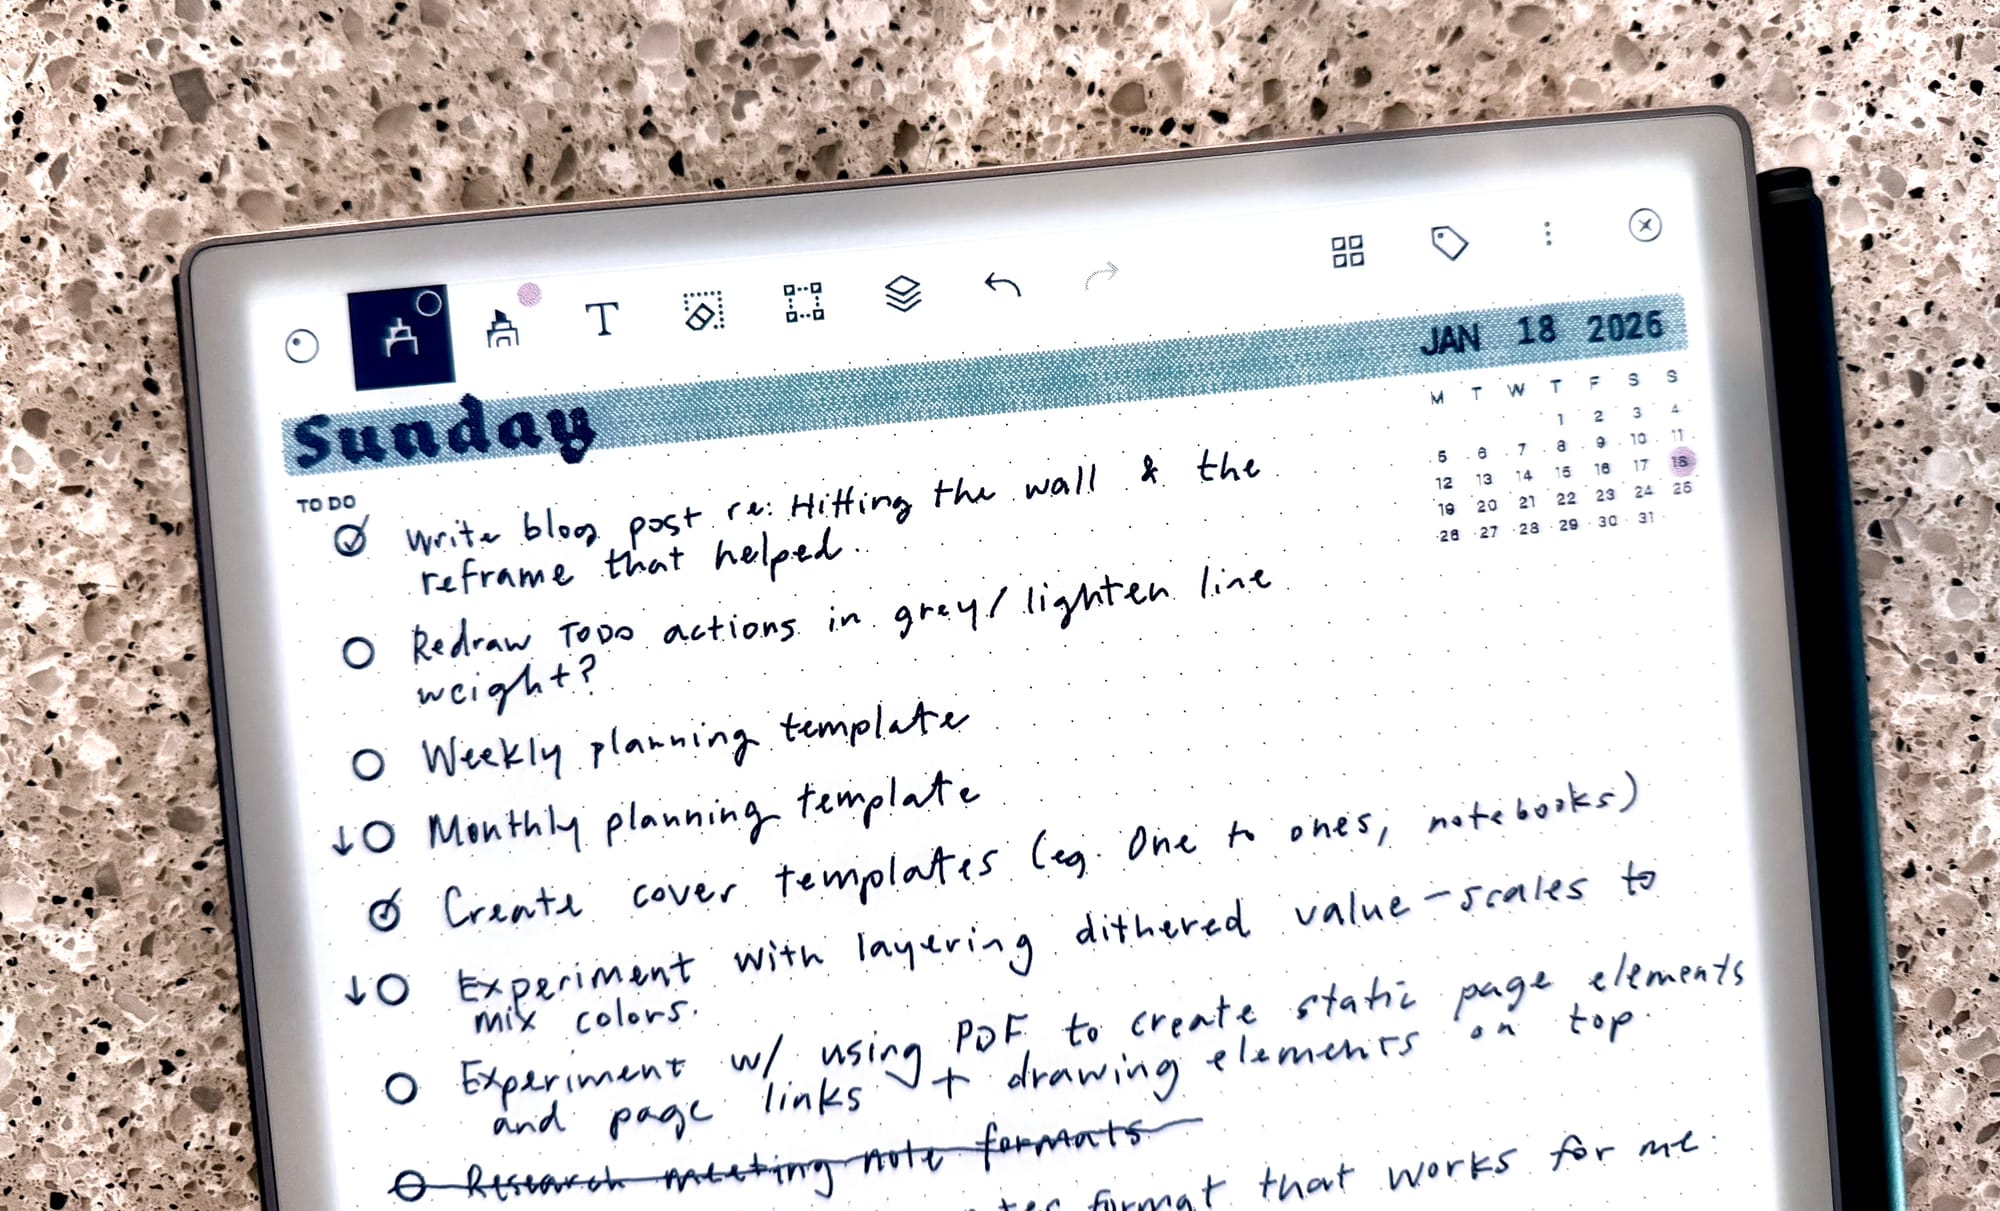 T
JAN 18 2026
Sunday
M T W T F S S
1 2 3 4
5 6 7 8 9 10 11
12 13 14 15 16 17 18
19 20 21 22 23 24 25
26 27 28 29 30 31
TO DO
Write blog post re: Hitting the wall & the
reframe that helped.
Redraw TODO actions in grey/lighten line
weight?
Weekly planning template
↓ Monthly planning template
Create cover templates (eg. One to ones, notebooks)
↓ Experiment with layering dithered value-scales to
mix colors.
Experiment w/ using PDF to create static page elements
and page links + drawing elements on top.
Research meeting note formats
format that works for me.